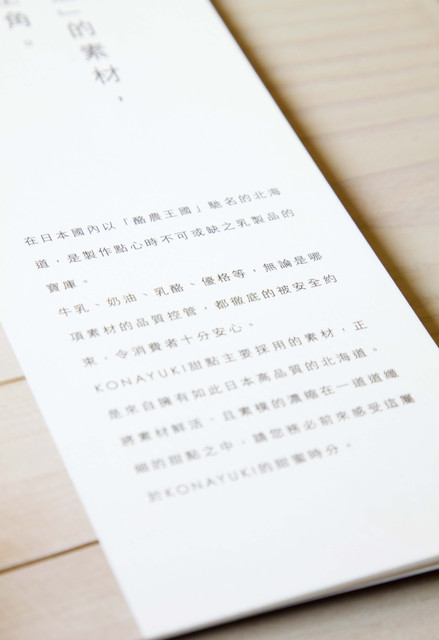 」的素材，
角。
在日本國內以「酪農王國」馳名的北海
道，是製作點心時不可或缺之乳製品的
寶庫。
牛乳、奶油、乳酪、優格等，無論是哪
項素材的品質控管，都徹底的被安全約
束，令消費者十分安心。
KONAYUKI甜點主要採用的素材，正
是來自擁有如此日本高品質的北海道。
將素材鮮活、且素樸的濃縮在一道道纖
細的甜點之中，請您務必前來感受這屬
於KONAYUKI的甜蜜時分。